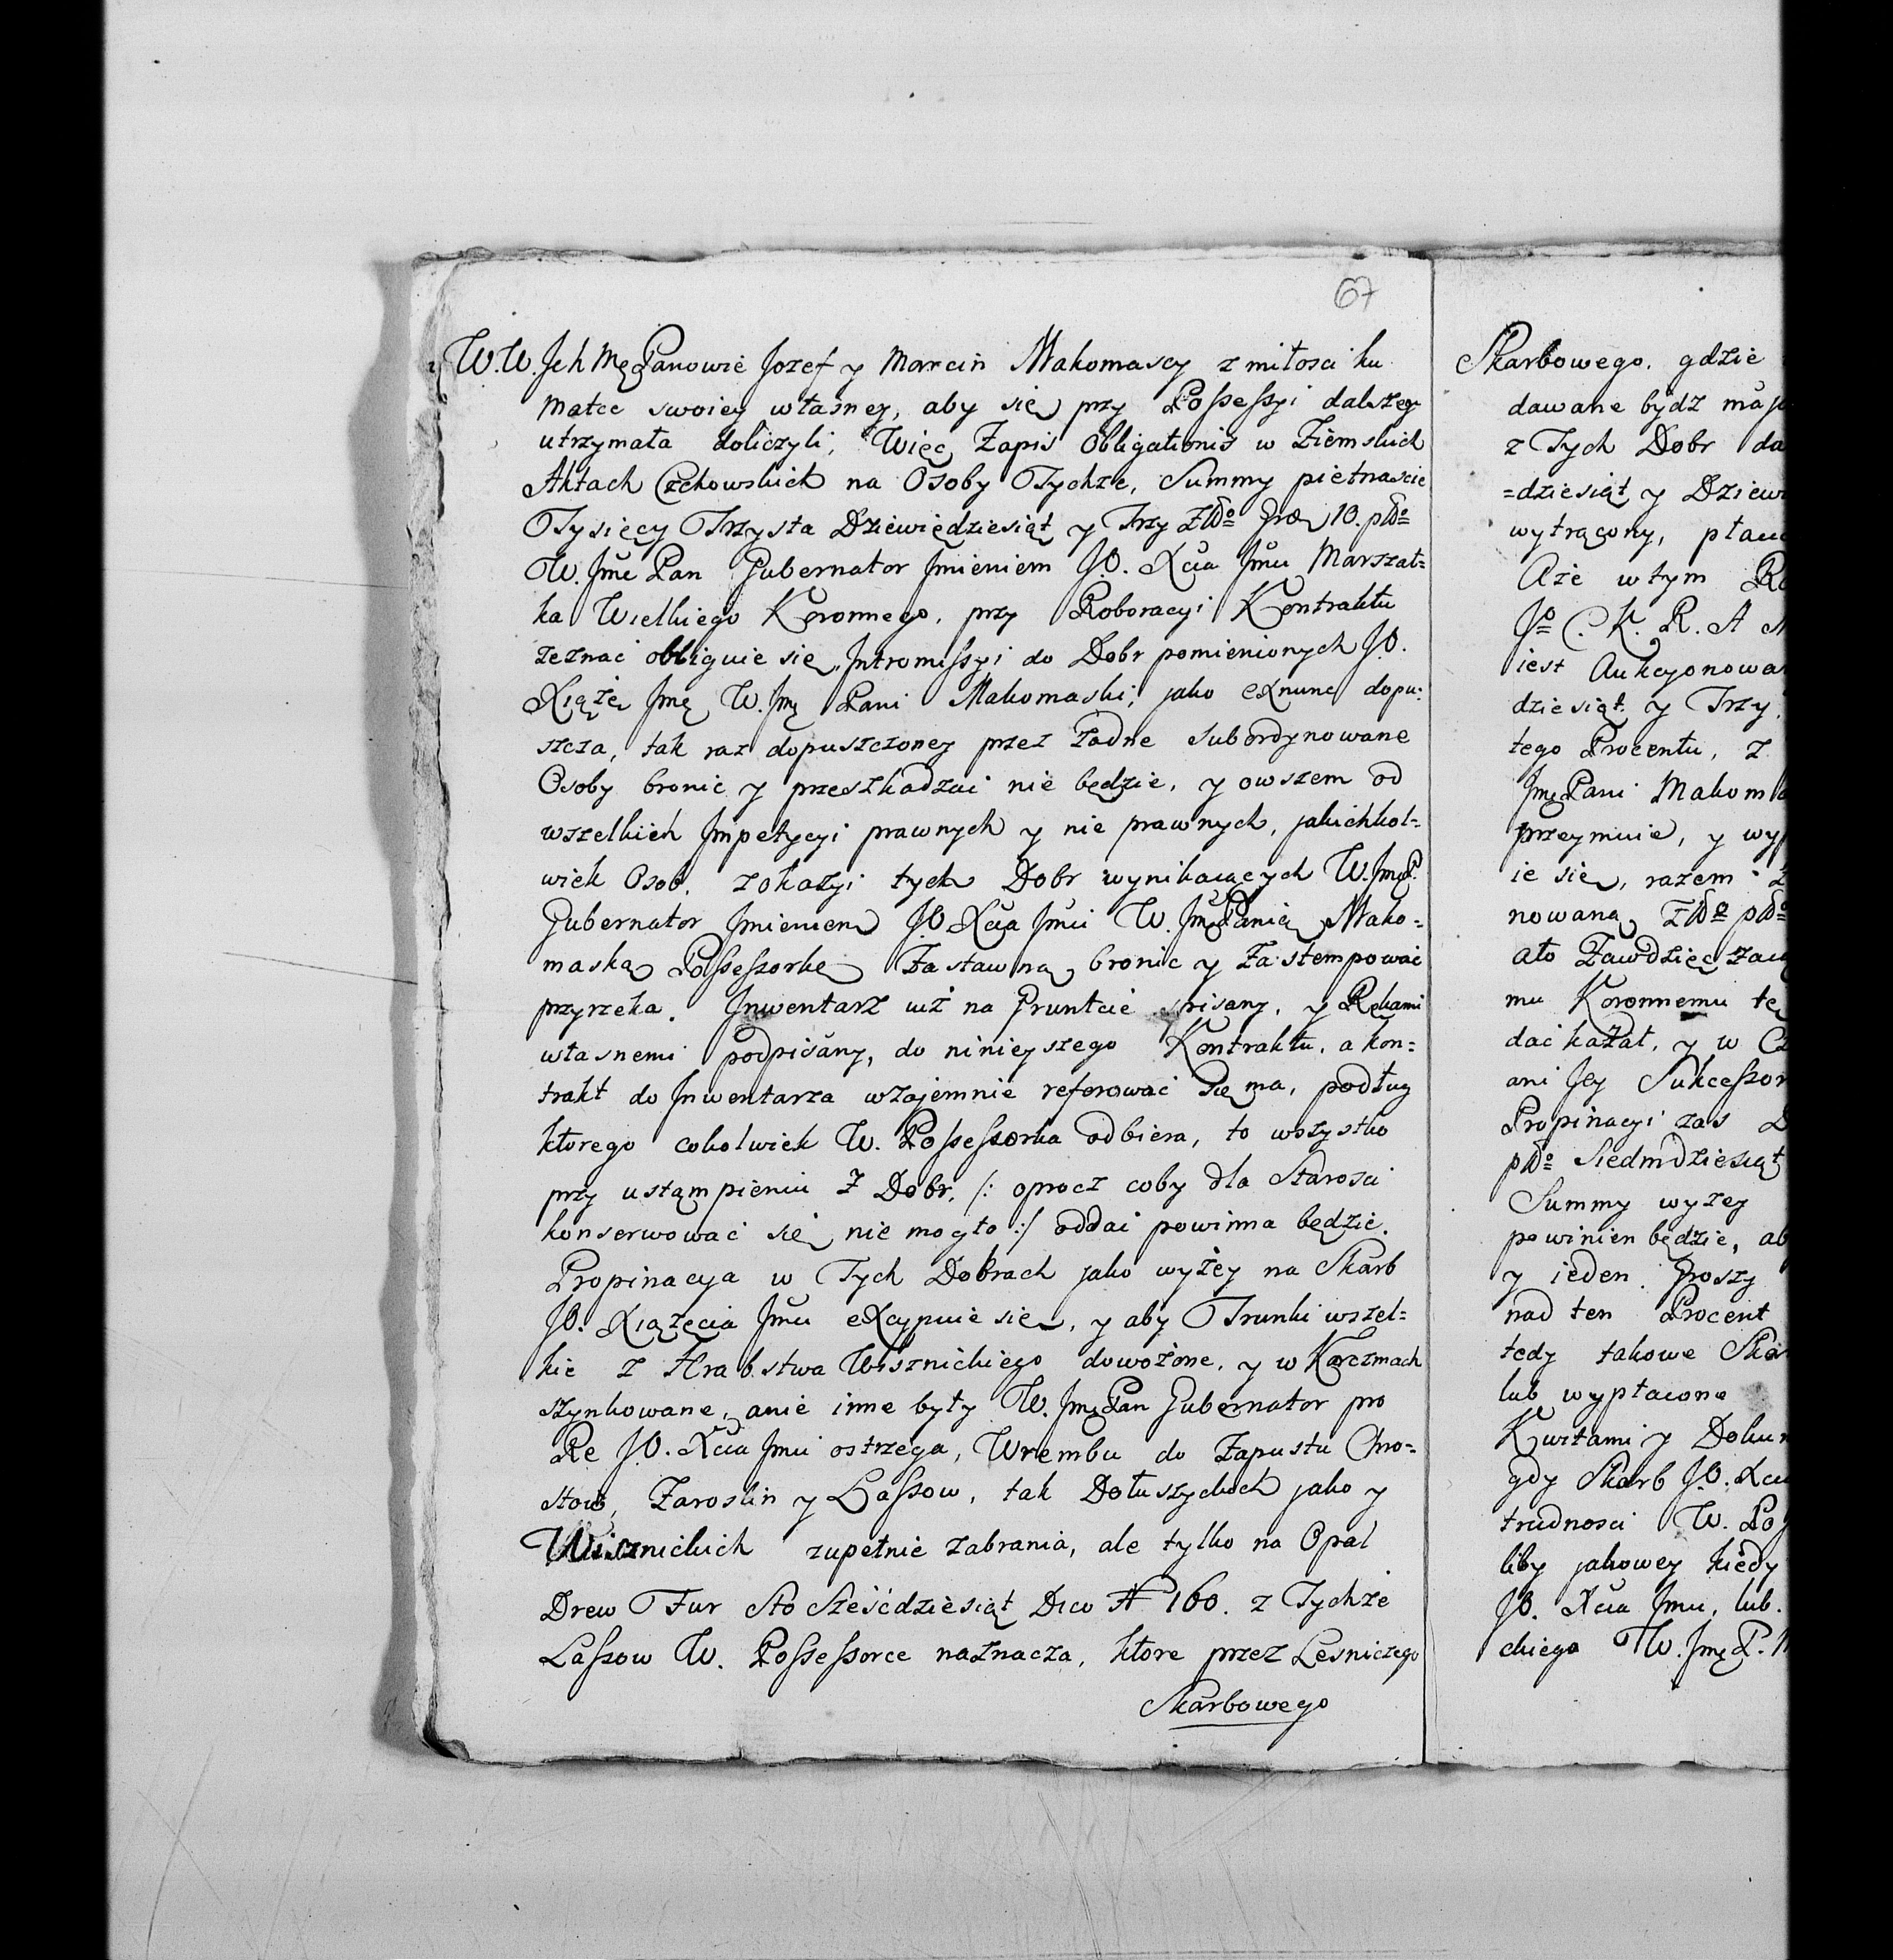 67
W.W. Jch Mę Panowie Jozef y Marcin Makomascy z miłosci ku
Matce swoiey własney, aby się przy Possessyi dalszey
utrzymała doliczyli, Więc Zapis Obligationis w Ziemskich
Aktach Czchowskich na Osoby Tychże, Summy pietnascie
Tysięcy Trzysta Dziewiędziesiąt y Trzy Złło Gro 10. pllo
W. Jmć Pan Gubernator Jmieniem J.O. Xcia Jmći Marszał=
ka Wielkiego Koronnego, przy Roboracyi Kontraktu
zeznać obliguie się, Jntromissyi do Dobr pomienionych J.O.
Xiąże Jmę W. Jmę Pani Makomaski, jako exnunc dopu:
szcza, tak raz dopuszczoney przez żadne subordynowane
Osoby bronić y przeszkadzać nie będzie, y owszem od
wszelkich Jmpetycyi prawnych y nie prawnych, jakichkol=
wiek Osob, z okazyi tych Dobr wynikaiących W. Jmę P.
Gubernator Jmieniem J.O. Xcia Jmći W. Jmę Panią Mako=
maską Possessorkę Zastawną bronić y Zastempować
przyrzeka. Jnwentarz już na Gruntcie spisany, y Rękami
własnemi podpisany, do ninieyszego Kontraktu, a kon=
trakt do Jnwentarza wzajemnie referować się ma, podług
ktorego cokolwiek W. Possessorka odbiera, to wszystko
przy ustąmpieniu z Dobr, /: oprocz coby dla Starosci
konserwować się nie mogło :/ oddać powinna będzie.
Propinacya w Tych Dobrach jako wyżey na Skarb
J.O. Xiążęcia Jmći excypuie się, y aby Trunki wszel=
kie z Hrabstwa Wisznickiego dowożone, y w Karczmach
szynkowane, anie inne były W. Jmę Pan Gubernator pro
Re J.O. Xcia Jmći ostrzega, Wrembu do Zapustu Chro=
stow, Zaroslin y Lassow, tak Dołuszyckich jako y
Wisznickich zupełnie zabrania, ale tylko na Opał
Drew Fur Sto Sześćdziesiąt Dico N 160. z Tychże
Lassow W. Possessorce naznacza, ktore przez Lesniczego
Skarbowego
Skarbowego. gdzie
dawane bydz maj
z Tych Dobr da
=dziesiąt y Dziew
wytrącony, płac
Aże w tym
Jo C. K. R. A
iest Aukcyonowa
dziesiąt y Trzy
tego Procentu, z
Jmę Pani Makom
przeymuie, y wy
ie się, razem
nowaną Złło pllo
ato Zawdzięcza
mu Koronnemu tę
dać kazał, y w
ani Jey Sukcessor
Propinacyi zas
pllo Siedmdziesiąt
Summy wyżey
powinien będzie, ab
y ieden Groszy
nad ten Procent
tedy takowe Skar
lub wypłacone
Kwitami y Doku
gdy Skarb J.O. Xci
trudnosci W. Po
liby jakowey kiedy
J.O. Xcia Jmći, lub
ckiego W. Jmę P.